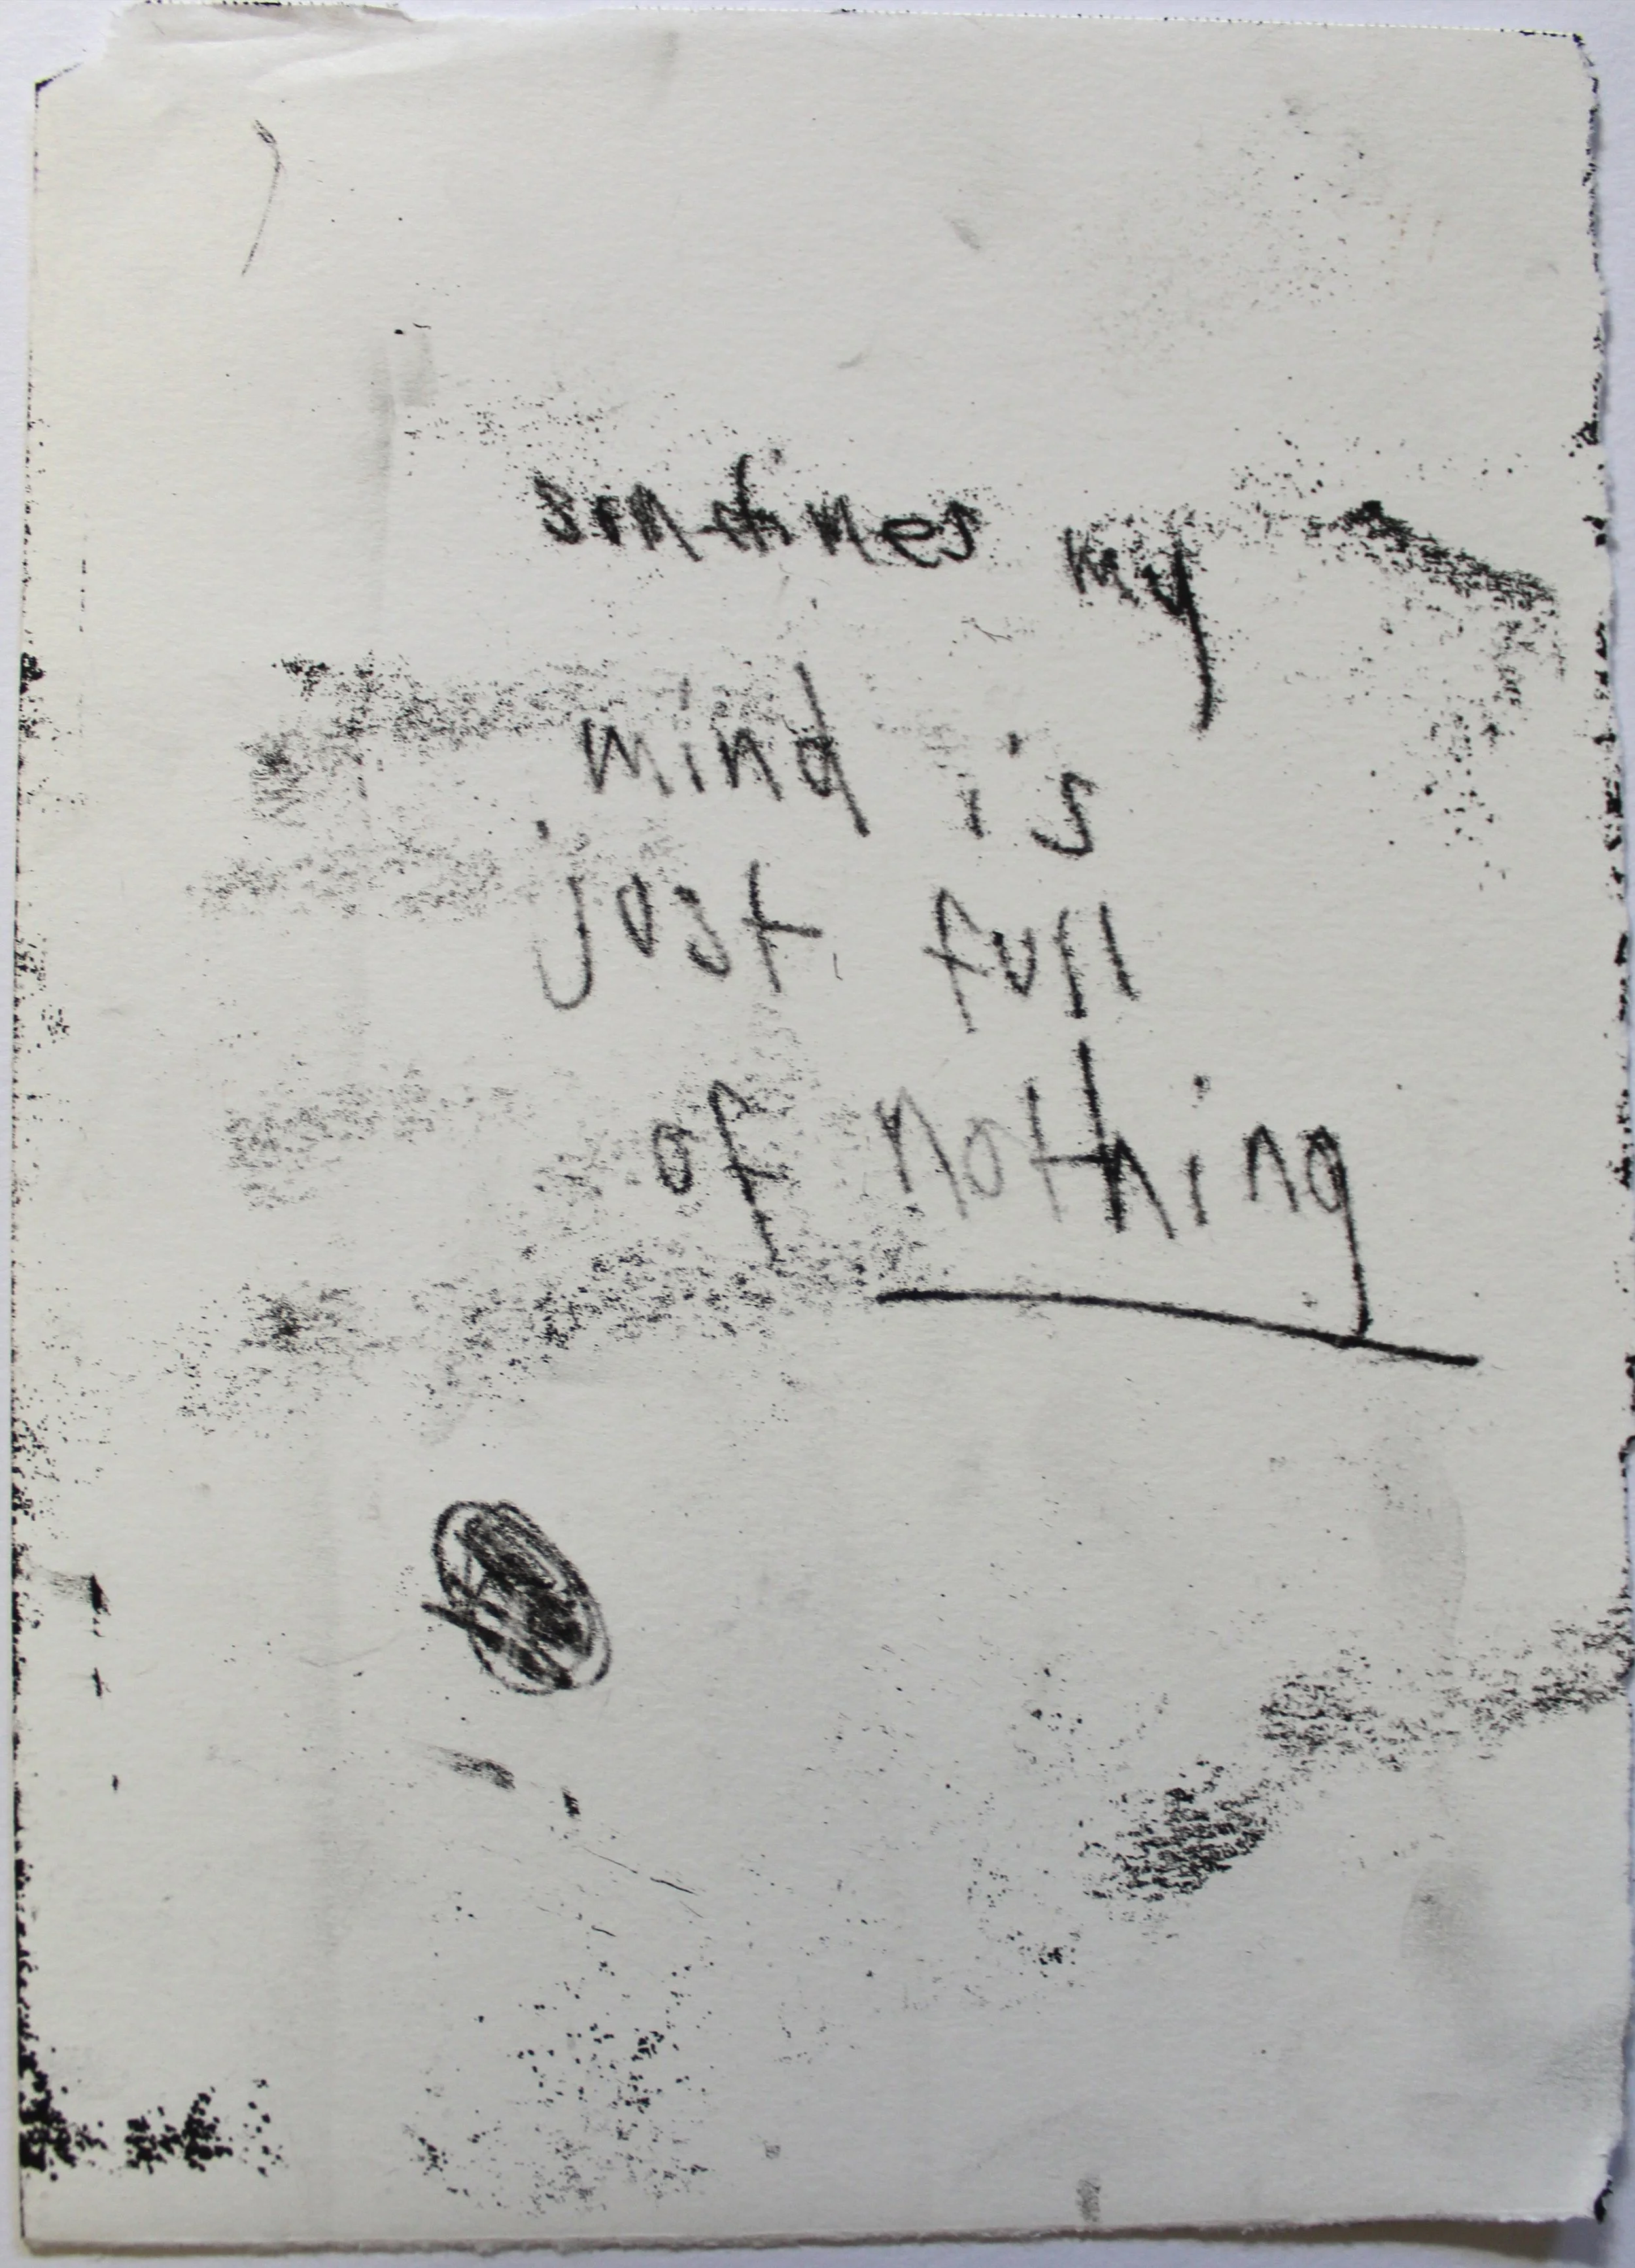 somtimes my
mind is
just full
of nothing